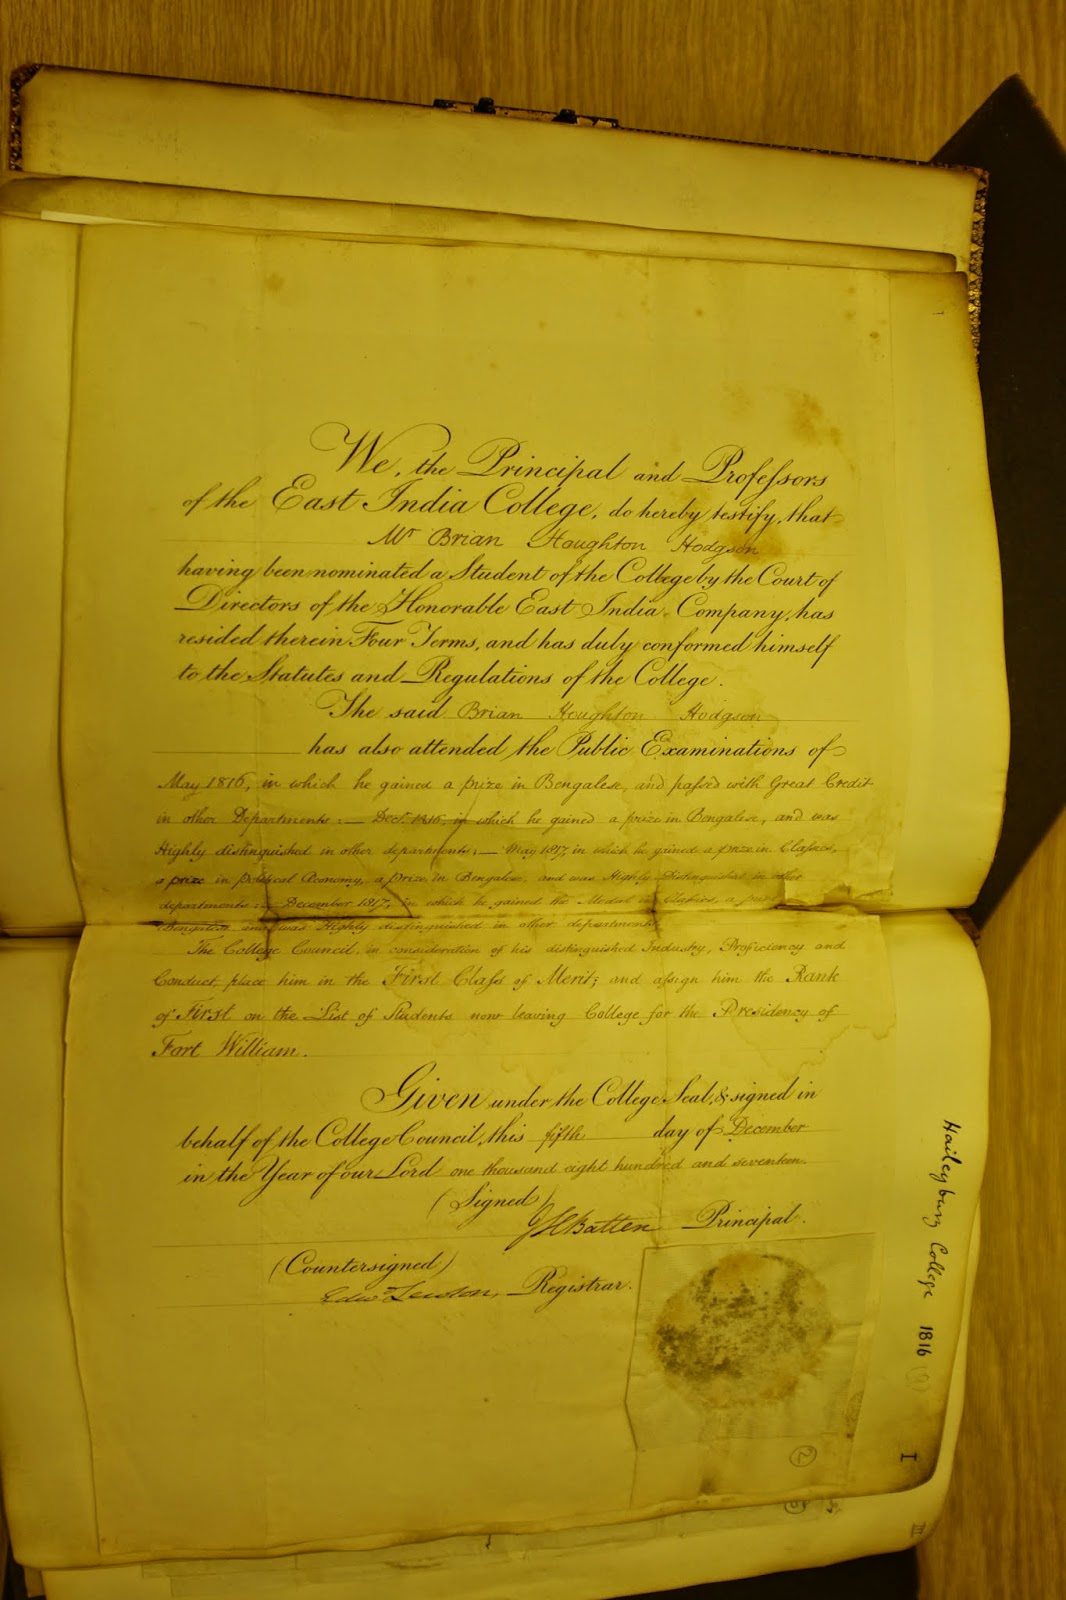 We, the Principal and Professors
of the East India College, do hereby testify, that
Mr Brian Houghton Hodgson
having been nominated a Student of the College by the Court of
Directors of the Honorable East India Company, has
resided therein Four Terms, and has duly conformed himself
to the Statutes and Regulations of the College.
The said Brian Houghton Hodgson
has also attended the Public Examinations of
May 1816, in which he gained a prize in Bengalese, and passed with Great Credit
in other Departments: — Dec. 1816, in which he gained a prize in Bengalese, and was
Highly distinguished in other departments; — May 1817, in which he gained a prize in Classics,
a prize in political Economy, a prize in Bengalese, and was Highly Distinguished in other
departments: — December 1817, in which he gained the Medal in Classics, a
Bengalese and was Highly distinguished in other departments
The College Council, in consideration of his distinguished Industry, Proficiency and
Conduct, place him in the First Class of Merit; and assign him the Rank
of First on the List of Students now leaving College for the Presidency of
Fort William.
Given under the College Seal, & signed in
behalf of the College Council, this fifth day of December
in the Year of our Lord one thousand eight hundred and seventeen.
(Signed)
JHBatten Principal.
(Countersigned)
Edw Registrar.
Haileybury College 1816
2
I
III